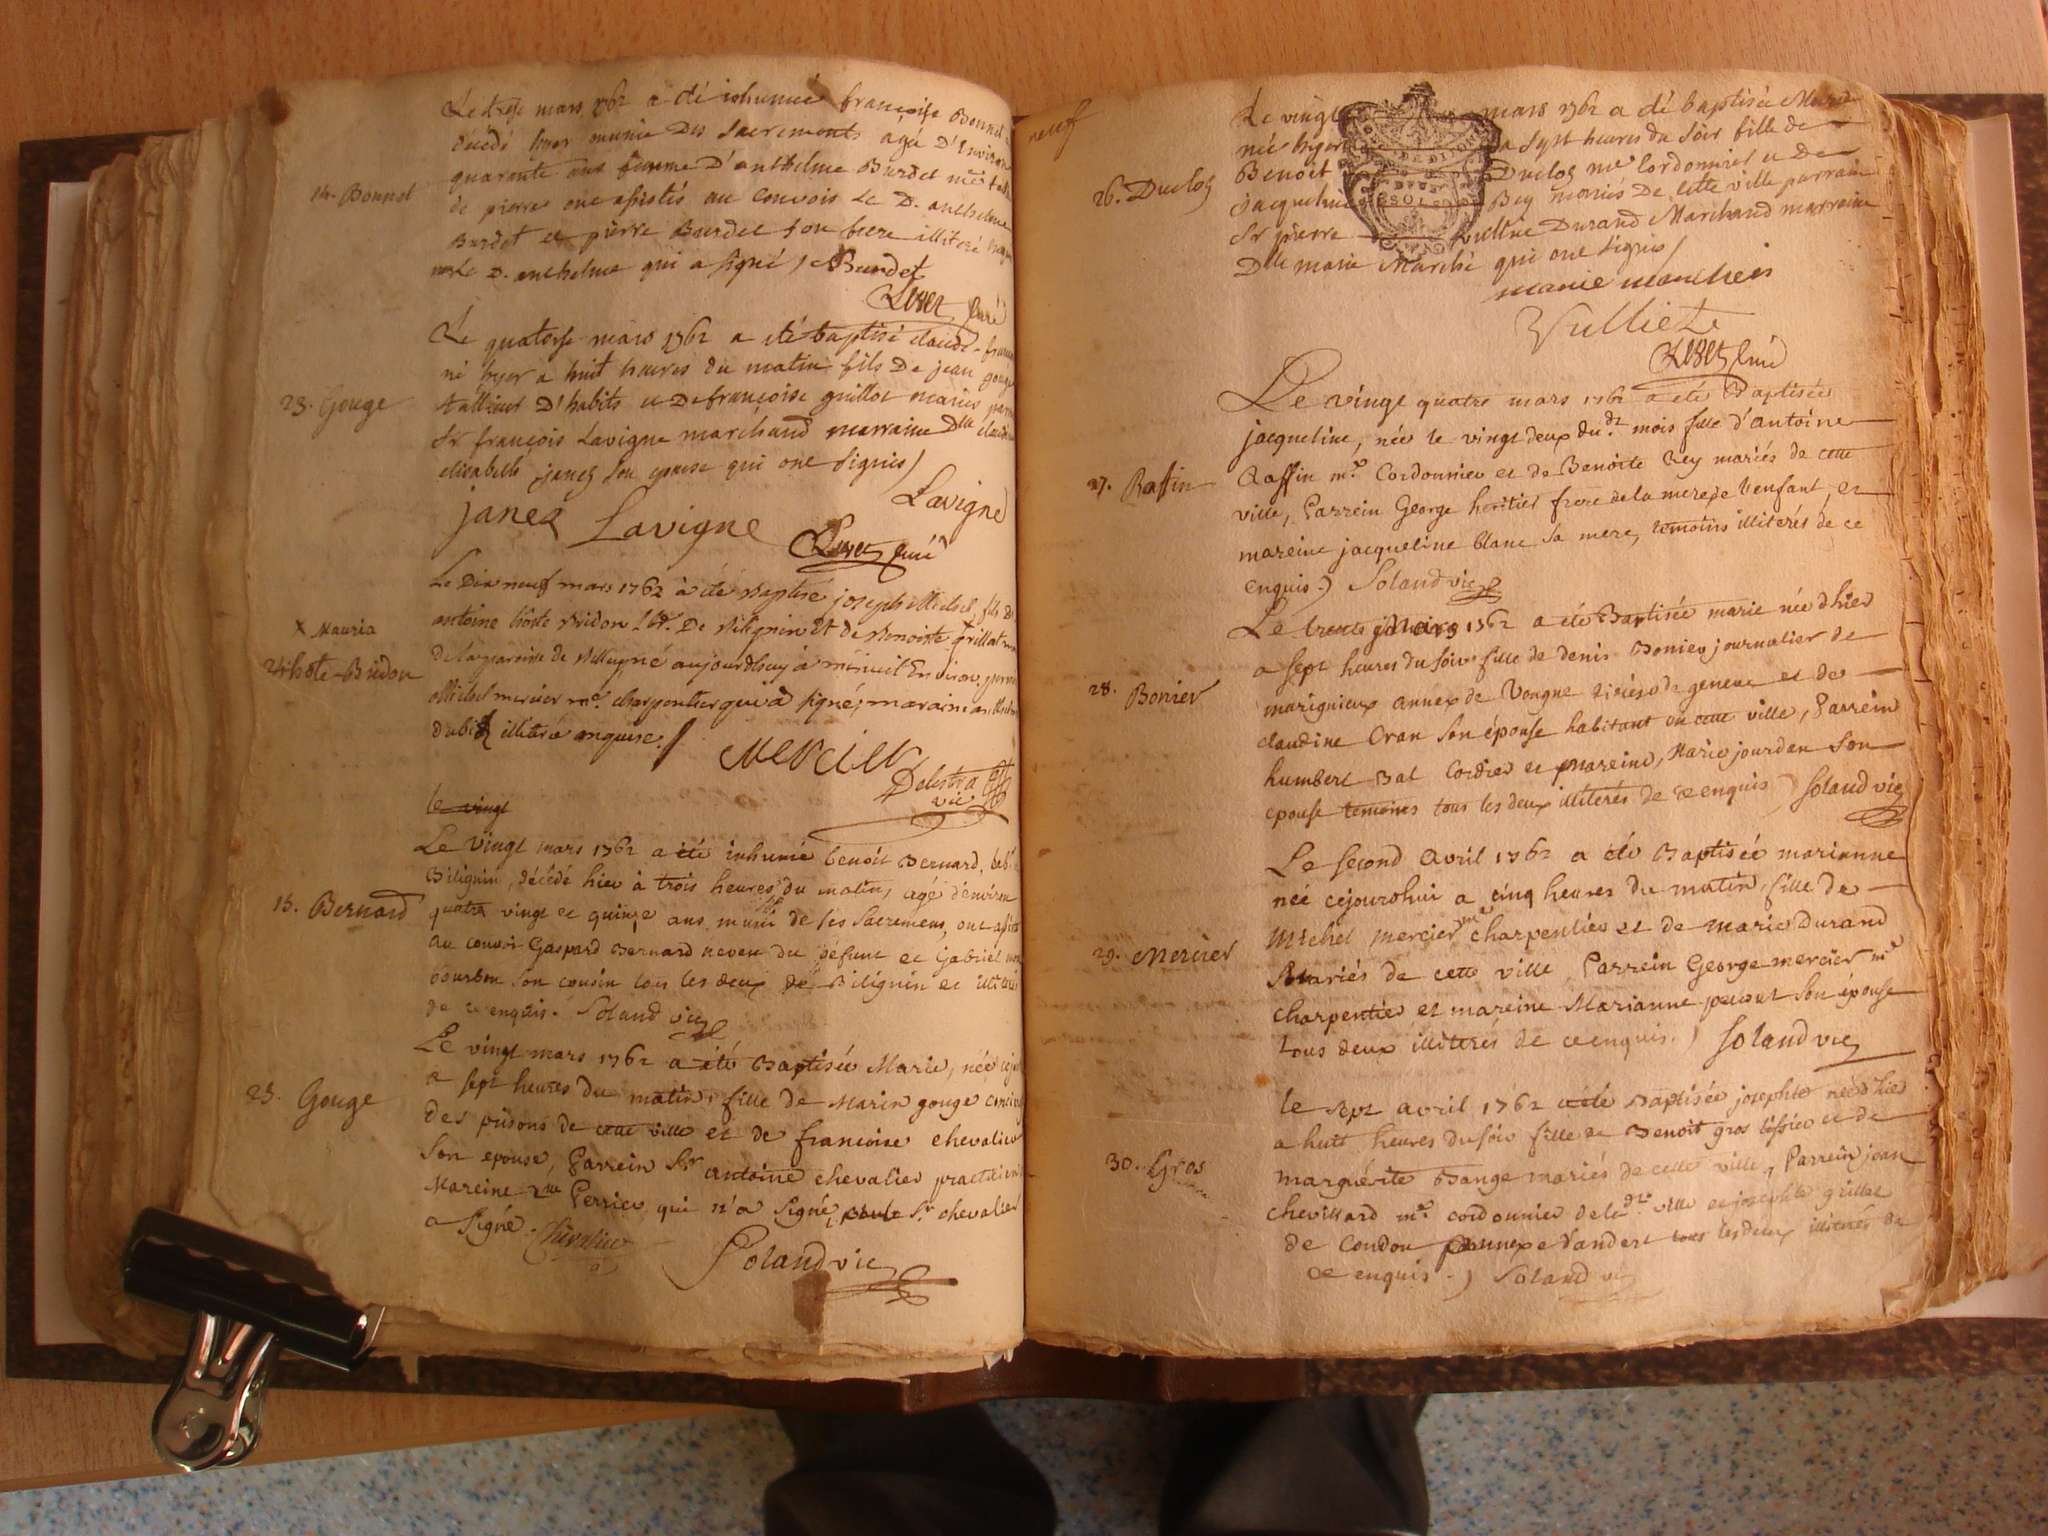 Le treze mars 1762 a été inhumée françoise Bonnet
décédé hyer munie Des Sacrements agée D'Environ
quarante ans femme D'anthelme Burdet
de pierre ont assistés au Convois Le D. anthelme
Burdet et pierre Burdet son frere illiteré
Le D. anthelme qui a signé / Burdet
14. Bonnet
curé
Le quatorse mars 1762 a été baptisé claude-
né hyer a huit heures du matin fils De jean gouge
tallieur D'habits et De françoise guillot mariés
Sr françois Lavigne marchand marraine Dlle
elisabeth janez son epouse qui ont signés /
23. Gouge
Lavigne
janez Lavigne
curé
Le Dix neuf mars 1762 à été Baptisé joseph Michel, fils De
antoine hôte Bridon De Billignin Et de Benoiste grillat
de la paroisse de né aujourdhuy à minuit Environ,
Michel mercier me. charpentier qui a signé, maraine
illiterée enquise.
x Mauria
24 hôte-Bridon
Mercier
vic
le vingt
Le vingt mars 1762 a été inhumé benoit Bernard,
Biliguin, décédé hier à trois heures du matin, agé denviron
quatre vingt et quinze ans muni de ses Sacremens, ont
au convoi Gaspard Bernard neveu du défunt et Gabriel
bourbon son cousin tous les deux de Biliguin et
de ce enquis. Soland vic
15. Bernard
Le vingt mars 1762 a été Baptisée Marie, née
a sept heures du matin, fille de Marin gouge
des prisons de cette ville et de francoise chevalier
Son epouse, Parrein Sr antoine chevalier
Mareine Perrier qui n'a Signé, Sr chevalier
a Signé. Chevalier
25. Gouge
Soland vic
neuf
Le vingt mars 1762 a été baptisée Marie
née hyer a sept heures du soir fille de
Benoît Duclos me Cordonnier et De
jacqueline Bey mariés De cette ville parrain
Sr pierre Durand Marchand marraine
Dlle marie Marché qui ont signés /
26. Duclos
Vulliet
curé
Le vingt quatre mars 1762 a été Baptisée
jacqueline, née le vingt deux dud. mois fille d'antoine
Raffin me. Cordonnier et de Benoite Rey mariés de cette
ville, Parrein George heritier frere de la mere de l'enfant, et
mareine jacqueline blanc sa mere, temoins illiterés de ce
enquis.) Soland vic
27. Raffin
Le trente Mars 1762 a été Baptisée marie née d'hier
a sept heures du soir fille de denis Bonier journalier de
marignieux annexe de Vongne de geneve et de
claudine Cran son épouse habitant en cette ville, Parrein
humbert Bal Cordier et mareine, Marie jourdan Son
epouse temoins tous les deux illiterés de ce enquis ) Soland vic
28. Bonier
Le Second Avril 1762 a été Baptisée marianne
née cejourdhui a cinq heures du matin, fille de
Michel mercier me charpentier et de marie Durand
Mariés de cette ville, Parrein George mercier me
charpentier et mareine Marianne son épouse
tous deux illiterés de ce enquis. ) Soland vic
29. Mercier
le sept avril 1762 a été Baptisée josephte née d'hier
a huit heures du soir fille de Benoit gros et de
marguérite Bange mariés de cette ville, Parrein jean
chevillard me. cordonnier de lad. ville et josephte grillat
de Condon annexe d'andert tous les deux illiterés de
ce enquis. ) Soland vic
30. Gros